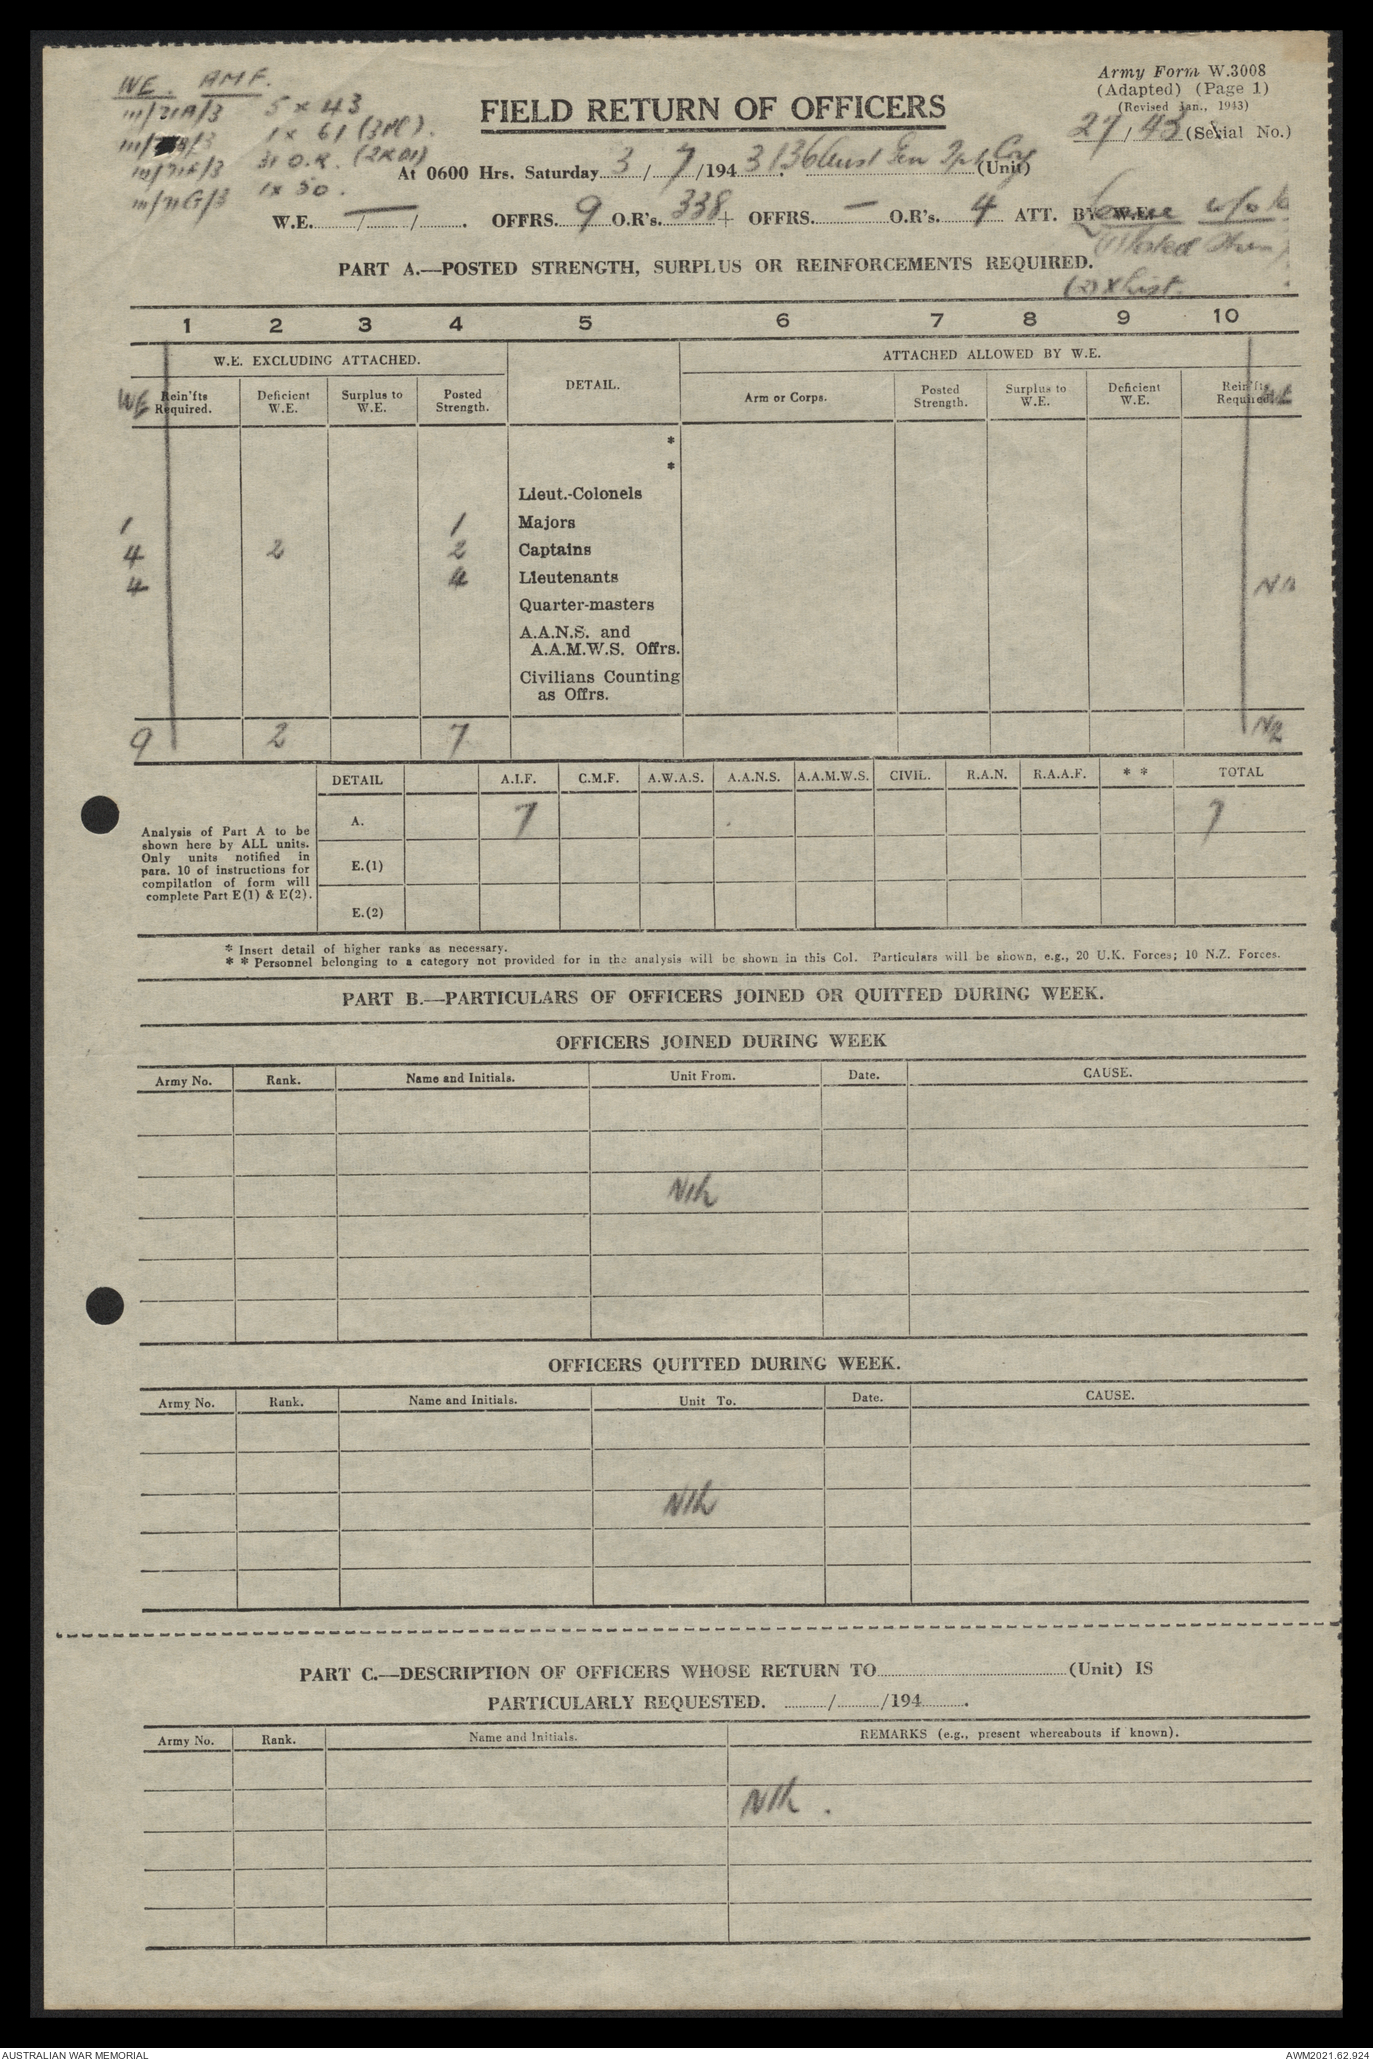 WE. AMF.
111/71A/3 5 x 43
1 x 61 (3 PC).
31 O.R. (2 R Dt)
111/71F/3
111/71G/3 1 x 50.
Army Form W.3008
(Adapted) (Page 1)
(Revised Jan., 1943)
27/43 (Serial No.)
FIELD RETURN OF OFFICERS
At 0600 Hrs. Saturday 3/7/1943. 136 Aust Gen Tpt Coy (Unit)
W.E. / / . OFFRS. 9 O.R's. 338 + OFFRS. — O.R's. 4 ATT. BY W.E.
(1) Posted Stren
(2) X List.
PART A.—POSTED STRENGTH, SURPLUS OR REINFORCEMENTS REQUIRED.
1 2 3 4 5 6 7 8 9 10
W.E. EXCLUDING ATTACHED. DETAIL. ATTACHED ALLOWED BY W.E.
WE Rein'fts Required. Deficient W.E. Surplus to W.E. Posted Strength. Arm or Corps. Posted Strength. Surplus to W.E. Deficient W.E. Rein'fts Required.
*
*
Lieut.-Colonels
1 1 Majors
4 2 2 Captains
4 4 Lieutenants Nil
Quarter-masters
A.A.N.S. and
A.A.M.W.S. Offrs.
Civilians Counting
as Offrs.
9 2 7 Nil
DETAIL A.I.F. C.M.F. A.W.A.S. A.A.N.S. A.A.M.W.S. CIVIL. R.A.N. R.A.A.F. * * TOTAL
A. 7 7
Analysis of Part A to be
shown here by ALL units.
Only units notified in
para. 10 of instructions for
compilation of form will
complete Part E(1) & E(2).
E.(1)
E.(2)
* Insert detail of higher ranks as necessary.
* * Personnel belonging to a category not provided for in the analysis will be shown in this Col. Particulars will be shown, e.g., 20 U.K. Forces; 10 N.Z. Forces.
PART B.—PARTICULARS OF OFFICERS JOINED OR QUITTED DURING WEEK.
OFFICERS JOINED DURING WEEK
Army No. Rank. Name and Initials. Unit From. Date. CAUSE.
Nil
OFFICERS QUITTED DURING WEEK.
Army No. Rank. Name and Initials. Unit To. Date. CAUSE.
Nil
PART C.—DESCRIPTION OF OFFICERS WHOSE RETURN TO (Unit) IS
PARTICULARLY REQUESTED. / /194 .
Army No. Rank. Name and Initials. REMARKS (e.g., present whereabouts if known).
Nil.
AUSTRALIAN WAR MEMORIAL AWM2021.62.924